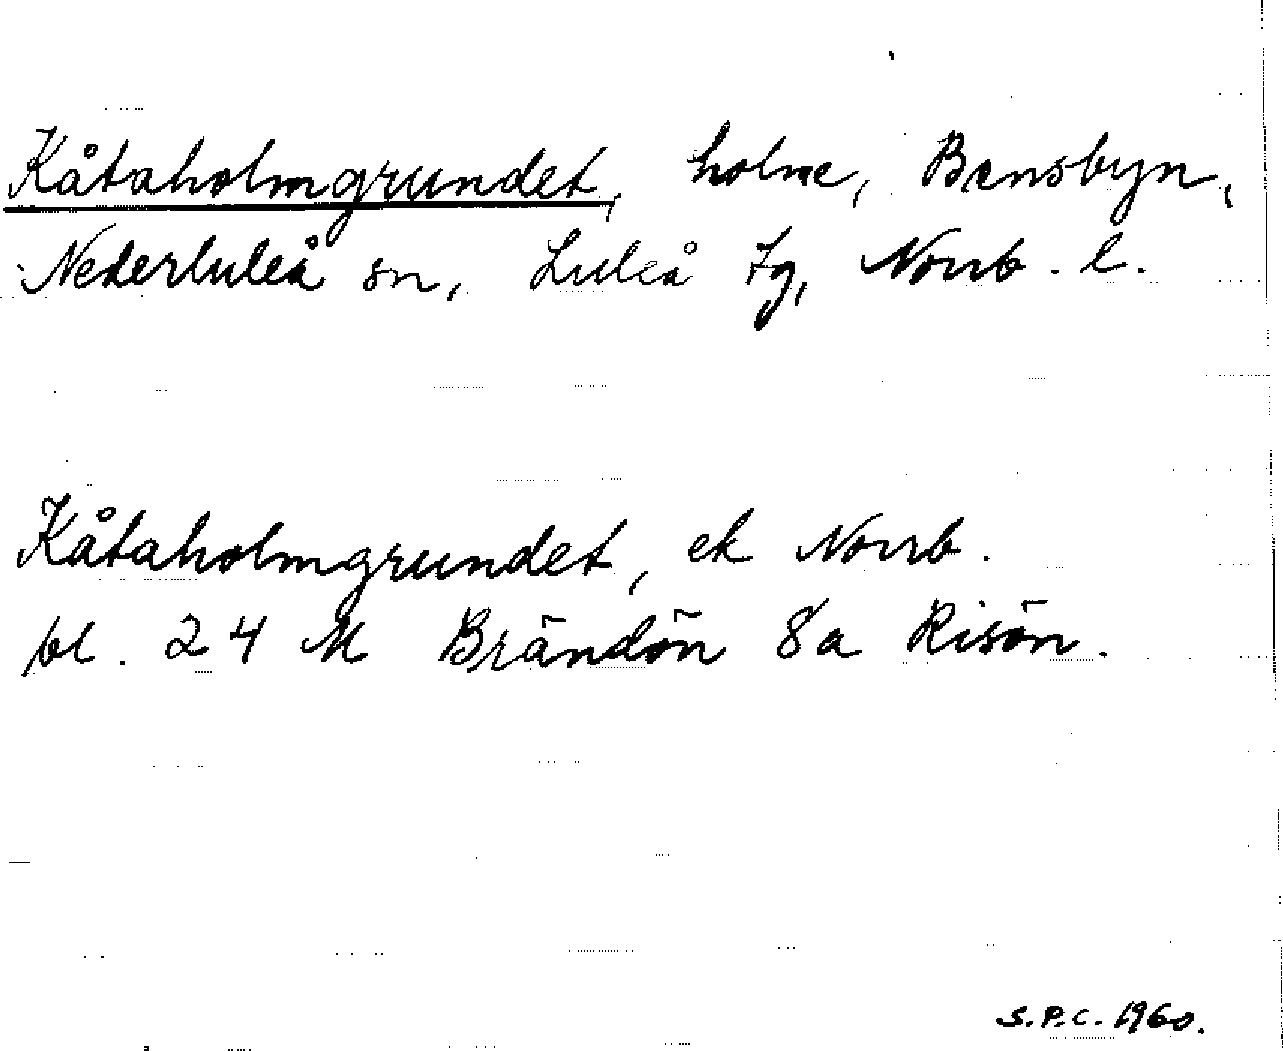 Kåtaholmgrundet, holme, Bensbyn,
Nederluleå sn, Luleå tg, Norrb. l.
Kåtaholmgrundet, ek Norrb.
bl. 24 M Brändön 8a Risön.
S.P.C. 1960.